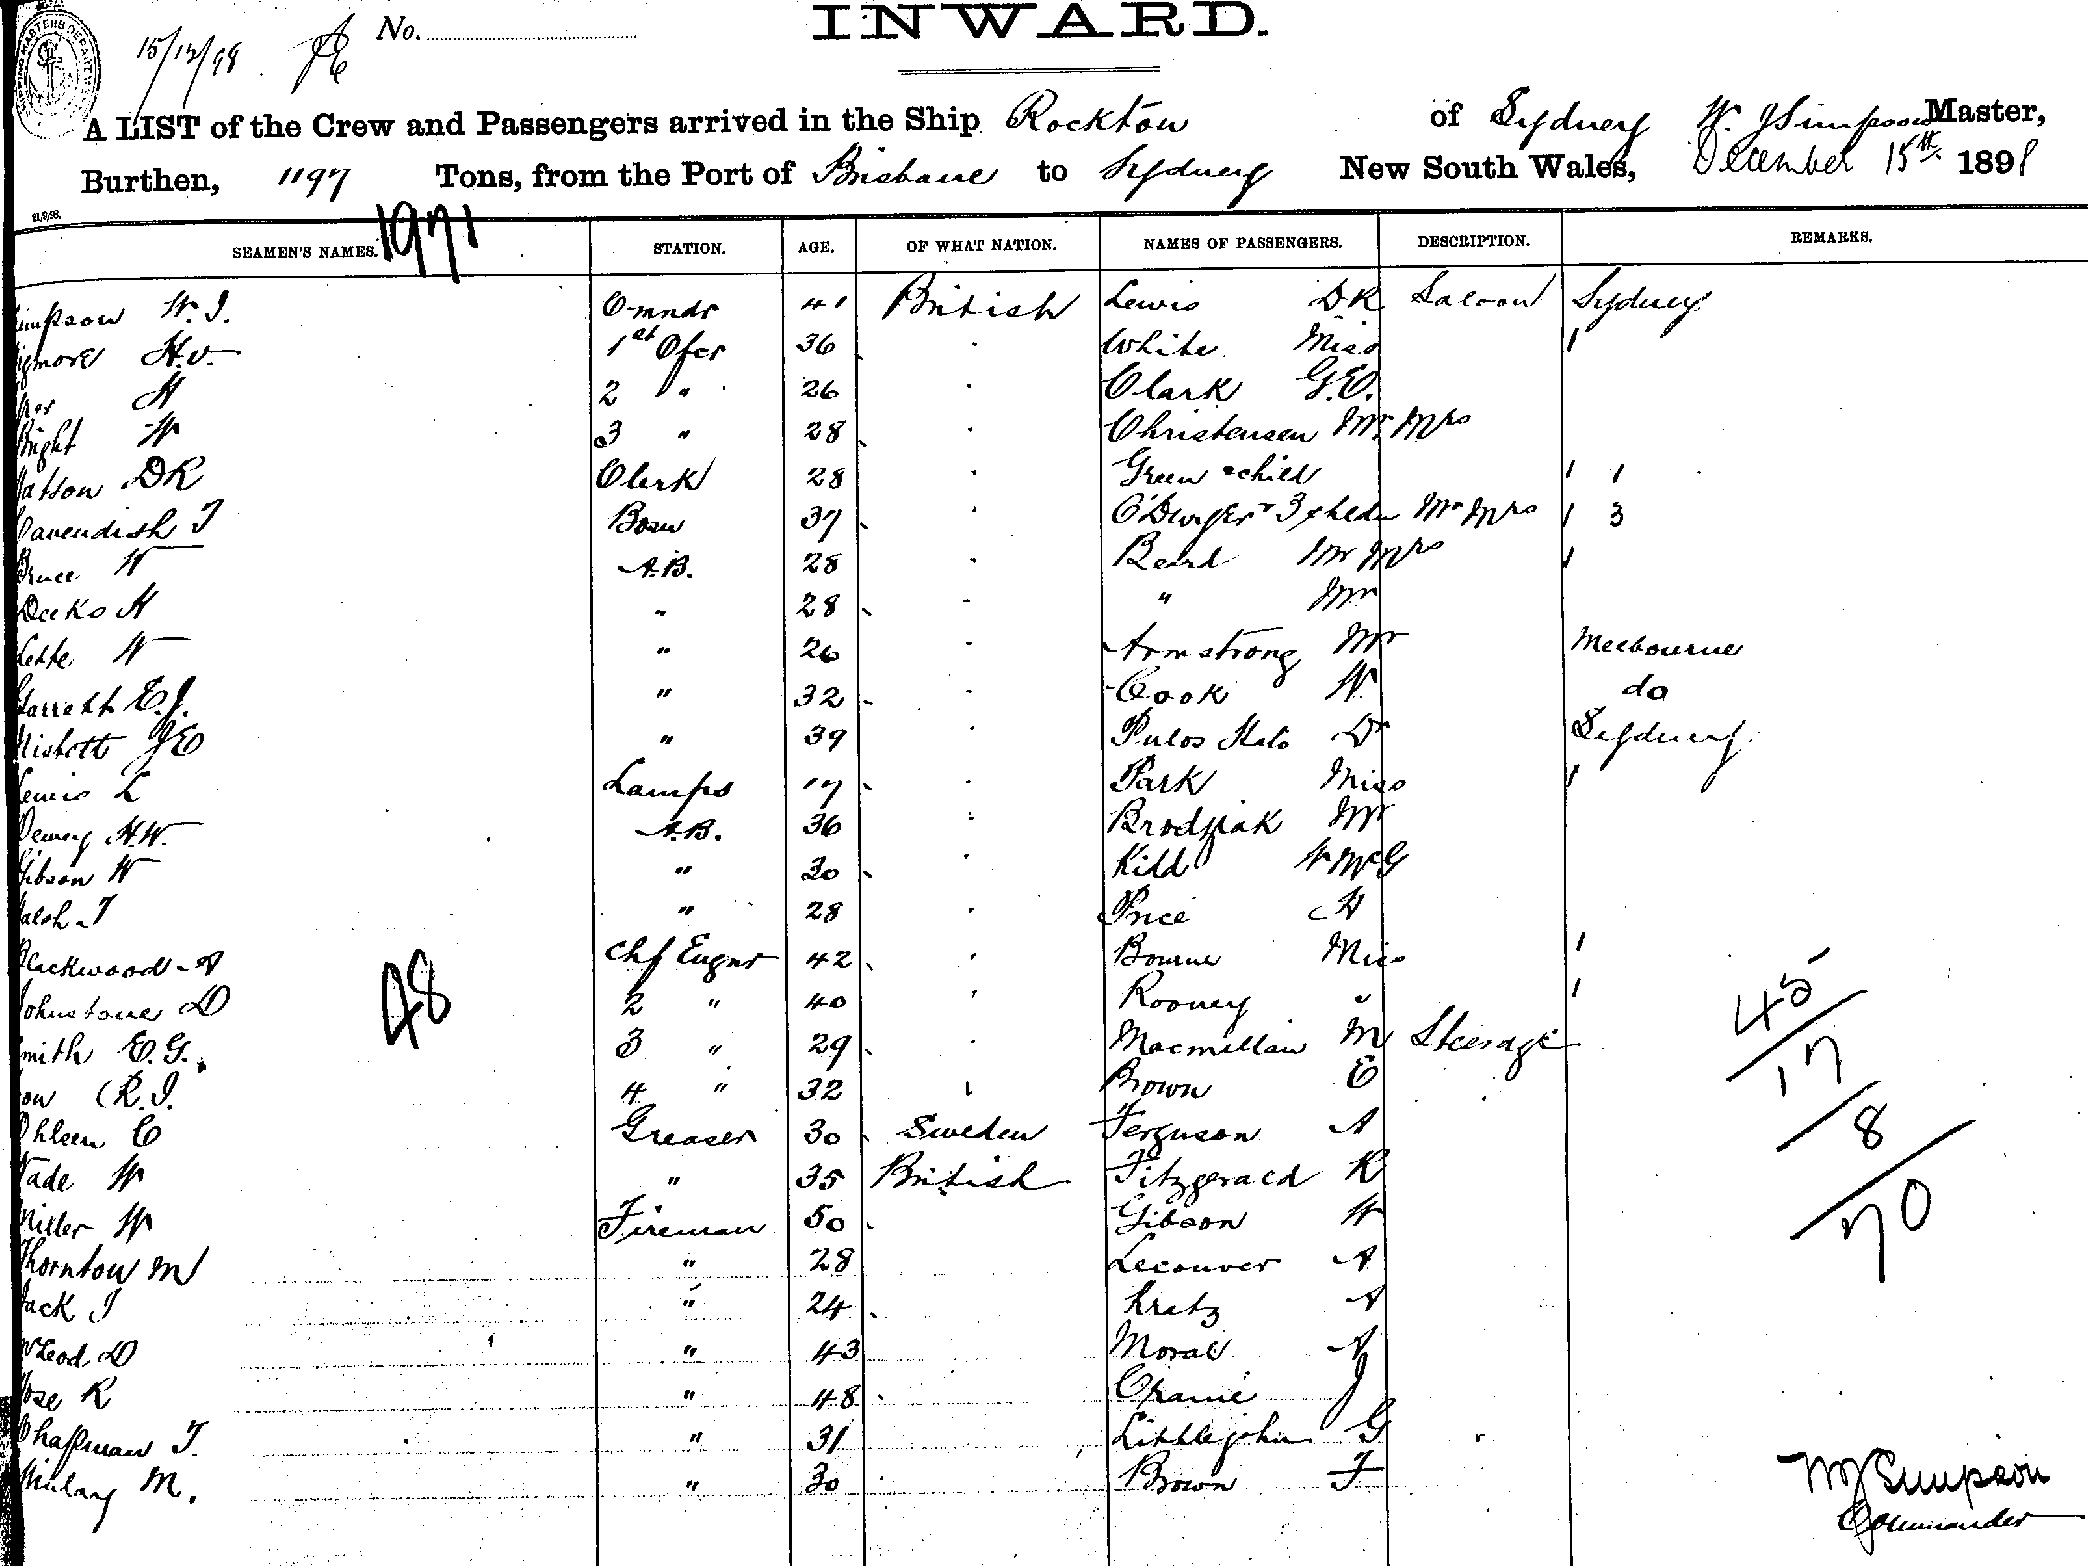 15/12/98 No.
INWARD.
A LIST of the Crew and Passengers arrived in the Ship Rockton of Sydney W. J Simpson Master,
Burthen, 1197 Tons, from the Port of Brisbane to Sydney New South Wales, December 15th 1898
1971
SEAMEN'S NAMES. STATION. AGE. OF WHAT NATION. NAMES OF PASSENGERS. DESCRIPTION. REMARKS.
impson W. J. Cmndr 41 British Lewis DR Saloon Sydney
H.V. 1st Ofcr 36 White Miss 1
H 2 " 26 Clark G.E.
W 3 " 28 Christensen Mr Mrs
atson DR Clerk 28 Green & child 1 1
Cavendish T Bosn 37 O'Dwyer & 3 chldn Mr Mrs 1 3
Bruce W A.B. 28 Beard Mr Mrs 1
Deeks H " 28 " Mr
W " 26 Armstrong Mr Melbourne
Garrett E.J. " 32 Cook W do
Nisbett J E " 39 Dr Sydney
Lewis L Lamps 17 Park Miss 1
Dewey H.W. A.B. 36 Brodziak Mr
Gibson W " 30 Kidd W McG
alsh T " 28 Price H
Blackwood A Chf Engnr 42 Bourne Miss 1
Johnstone D 2 " 40 Rooney " 1
48
mith E.G. 3 " 29 Macmillan M Steerage
on R.J. 4 " 32 Brown E
Ohlsen C Greaser 30 Sweden Ferguson A
Wade W " 35 British Fitzgerald R
Miller W Fireman 50 Gibson W
Thornton M " 28 Lecouver A
ack J " 24 Kratz A
McLeod D " 43 A
ose R " 48 J
Chapman T. " 31 Littlejohn G
M. " 30 Brown F
45
17
8
70
W J Simpson
Commander